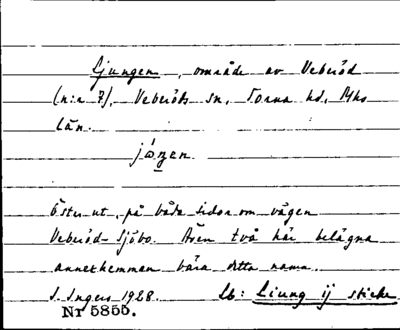 Ljungen, område av Veberöd
(n:r 7), Veberöds sn, Torna hd, Mhs
län.
Öster ut, på båda sidor om vägen
Veberöd–Sjöbo. Även två här belägna
annexhemman bära detta namn.
S. Ingers 1928. Lb: Liung ij sticke.
Nr 5855.